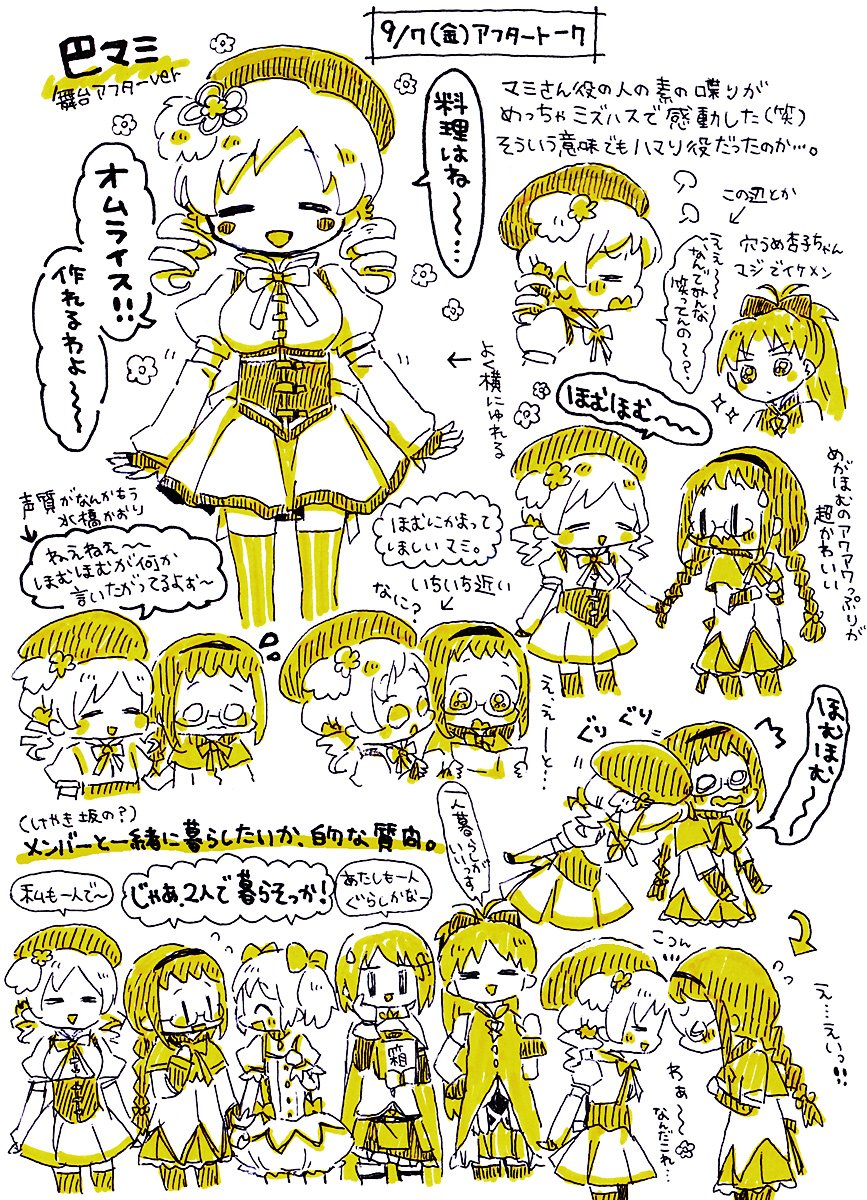 9/7(金)アフタートーク
巴マミ
舞台アフターver
マミさん役の人の素の喋りが
めっちゃミズハスで感動した(笑)
そういう意味でもハマり役だったのか…。
料理はね〜〜…
オムライス!!
作れるわよ〜〜〜
この辺とか
ええ〜〜
なんでみんな
笑ってんの〜?
穴うめ杏子ちゃん
マジでイケメン
よく横にゆれる
ほむほむ〜〜〜
めがほむのアワアワっぷりが
超かわいい
声質がなんかもう
水橋かおり
ねえねえ〜
ほむほむが何か
言いたがってるよぉ〜
ほむにかまって
ほしいマミ。
いちいち近い
なに?
え、えーと…
ぐり
ぐり
ほむほむ〜
(けやき坂の?)
メンバーと一緒に暮らしたいか、的な質問。
私も一人で〜
じゃあ2人で暮らそっか!
あたしも一人
ぐらしかなー
一人暮らしが
いいっす
箱
こつん
わぁ〜〜
なんだこれ…
え…えいっ!!